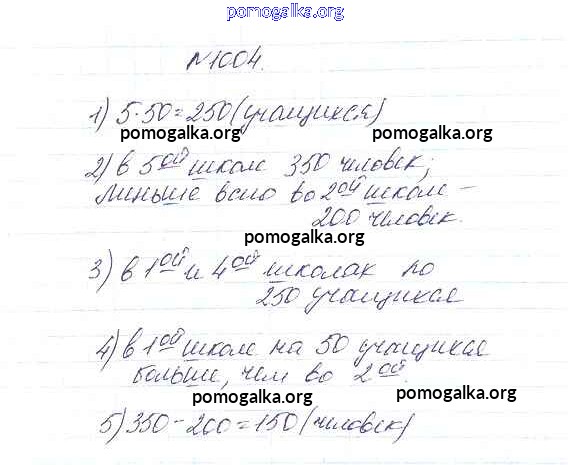 pomogalka.org
№1004.
1) 5·50=250 (учащихся)
pomogalka.org pomogalka.org
2) в 5ой школе 350 человек;
меньше всего во 2ой школе –
200 человек.
pomogalka.org
3) в 1ой и 4ой школах по
250 учащихся
4) в 1ой школе на 50 учащихся
больше, чем во 2ой.
pomogalka.org pomogalka.org
5) 350-200=150 (человек)